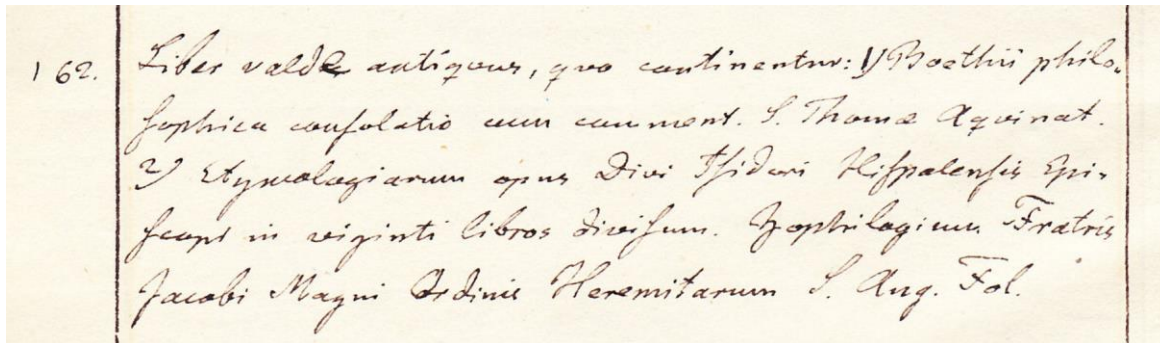 162. Liber valde antiquus, quo continentur: 1) Boethii philo-
sophica consolatio cum comment. S. Thomæ Aquinat.
2) Etymologiarum opus Divi Isidori Hispalensis Epi-
scopi in viginti libros divisum. Zophilogium Fratris
Jacobi Magni Ordinis Heremitarum S. Aug. Fol.